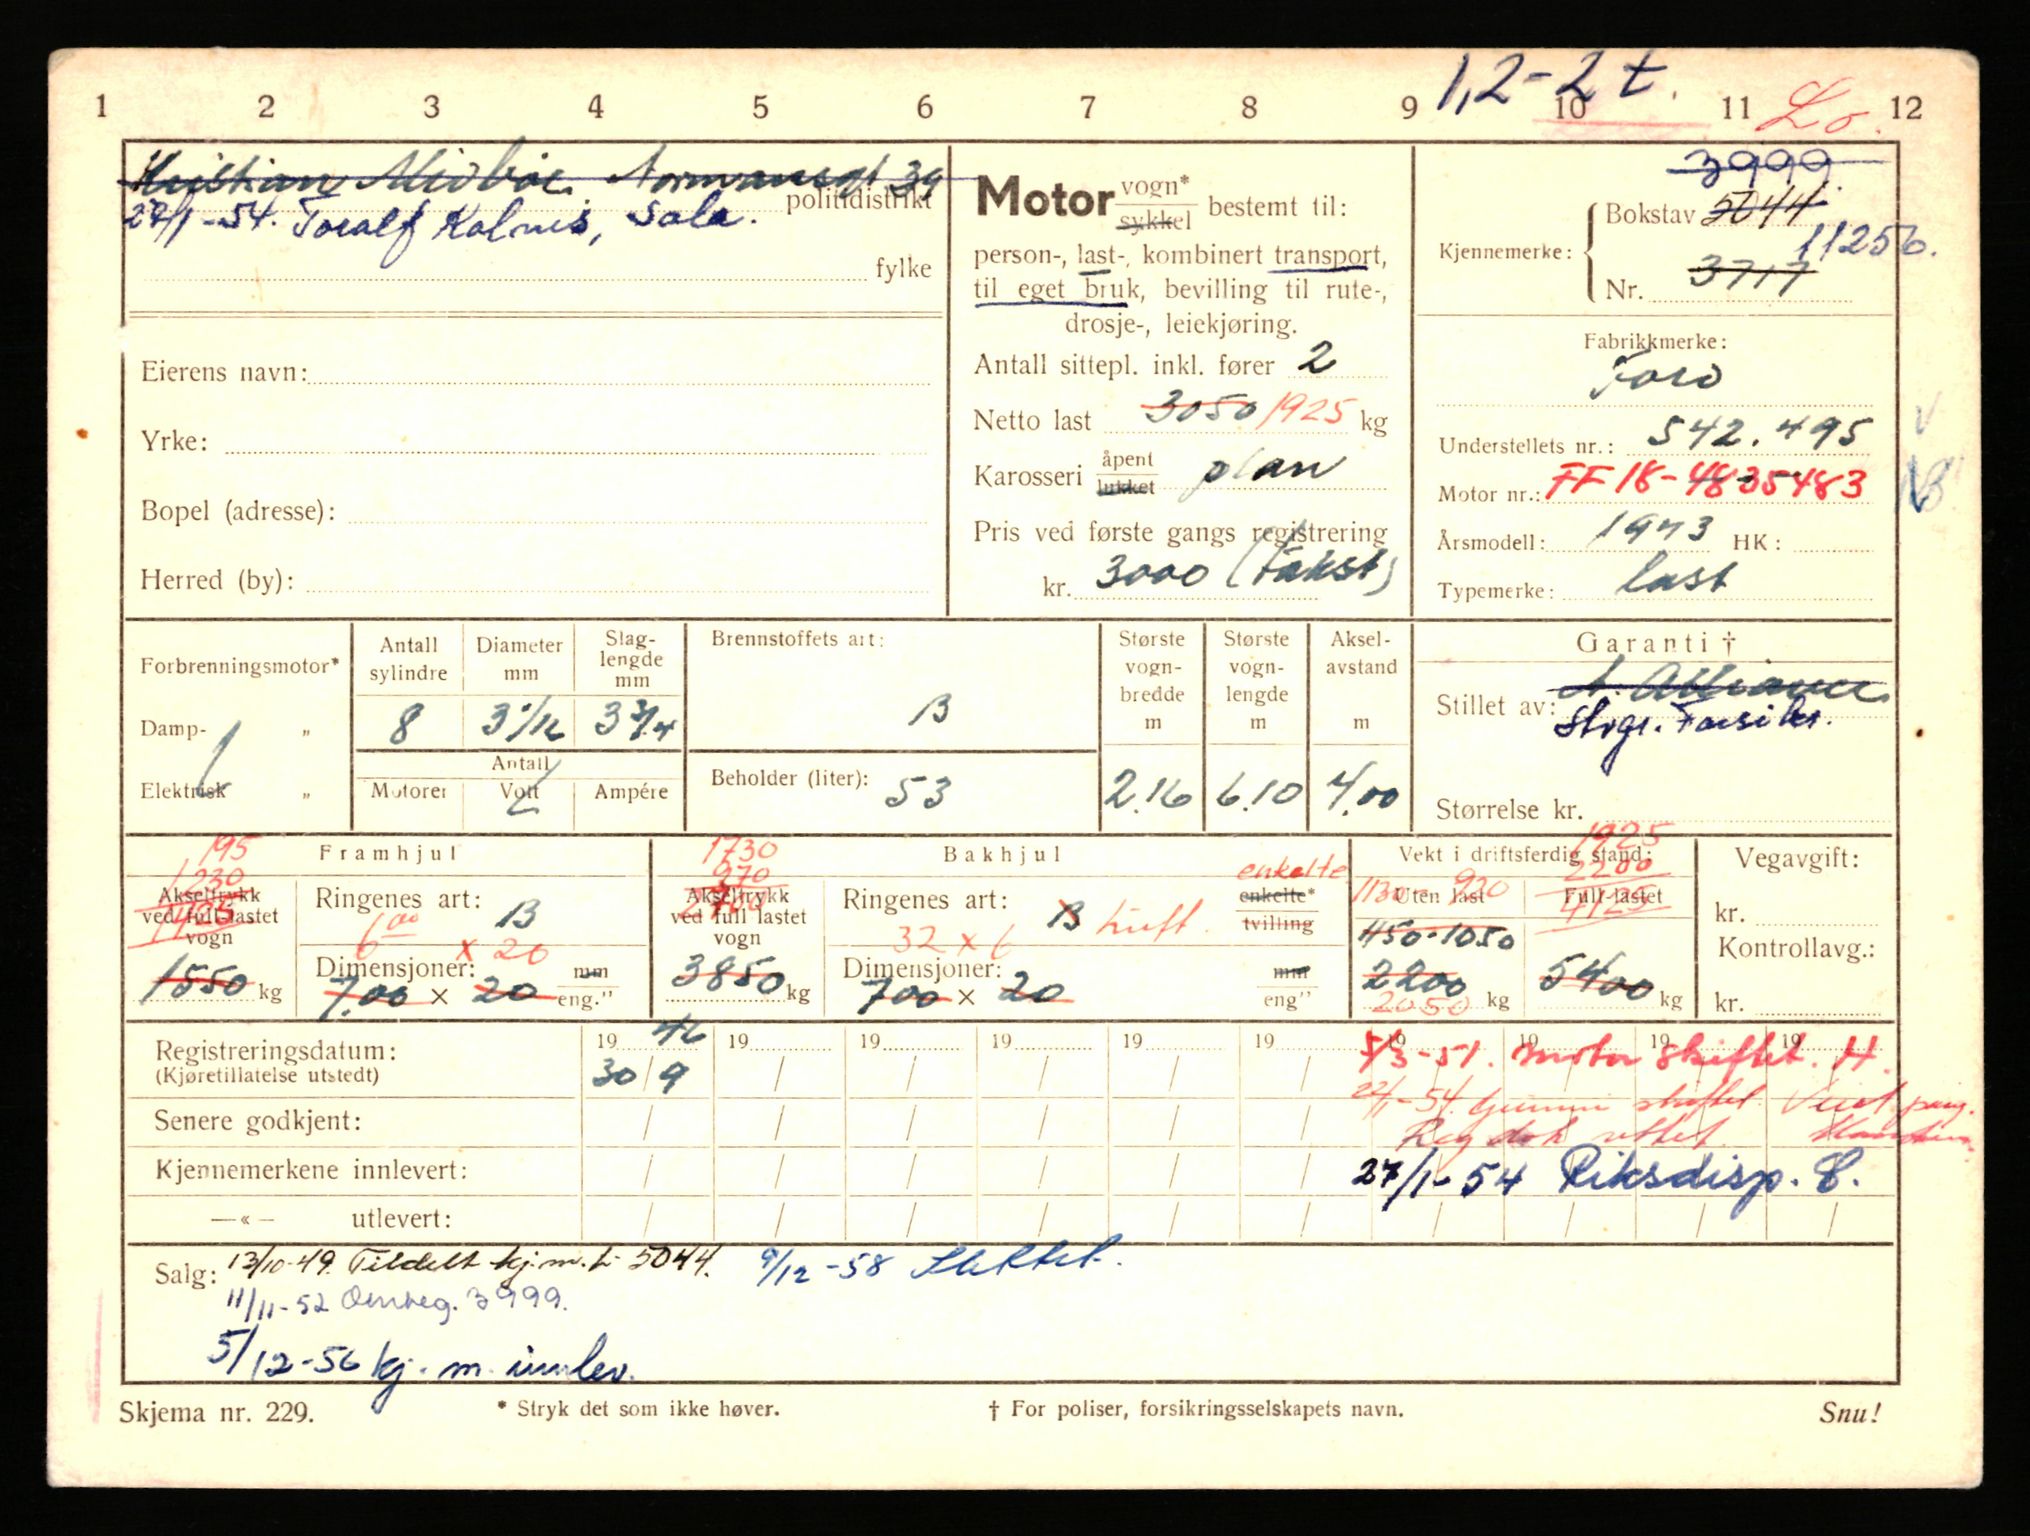 1,2-2 t.
1 2 3 4 5 6 7 8 9 10 11 12
Lo.
Kristian Midbøe. Normannsgt 39
politidistrikt
27/1-54. Toralf Kolnes, Sola.
fylke
Eierens navn:
Yrke:
Bopel (adresse):
Herred (by):
Motor vogn* sykkel bestemt til:
person-, last-, kombinert transport,
til eget bruk, bevilling til rute-,
drosje-, leiekjøring.
Antall sittepl. inkl. fører 2
Netto last 3050 1925 kg
Karosseri åpent lukket plan
Pris ved første gangs registrering
kr. 3000 (takst)
3999
Kjennemerke: Bokstav 5044
11256.
Nr. 3717
Fabrikkmerke:
Ford
Understellets nr.: 542.495
Motor nr.: FF 18-4835483
Årsmodell: 1943 HK:
Typemerke: last
Forbrenningsmotor*
Damp- „
Elektrisk „
Antall sylindre Diameter mm Slaglengde mm
8 3 1/16 3 3/4
Antall
Motorer Volt Ampére
Brennstoffets art:
B
Beholder (liter): 53
Største vognbredde m 2.16
Største vognlengde m 6.10
Akselavstand m 4.00
Garanti †
Stillet av: N. Alliance
Storgr. Forsikr.
Størrelse kr.
Framhjul
195
1230
1425
Akseltrykk ved full lastet vogn
1550 kg
Ringenes art: B
6 00 x 20
Dimensjoner: mm
7.00 × 20 eng."
Bakhjul
1730
970
2700
Akseltrykk ved full lastet vogn
3850 kg
Ringenes art: B luft.
enkelte
enkelte* tvilling
32 x 6
Dimensjoner: mm
700 × 20 eng"
Vekt i driftsferdig stand:
1130-920
Uten last
1150-1050
2200
2050 kg
1925
2200
4125
Full lastet
5400 kg
Vegavgift:
kr.
Kontrollavg.:
kr.
Registreringsdatum: 19 46 19 19 19 19 19 19 19 19 19
(Kjøretillatelse utstedt) 30/9
5/3-51. Motor skiftet. H.
22/1-54. Gummi skiftet
Senere godkjent:
Reg dok rettet.
Kjennemerkene innlevert:
27/1-54 Riksdisp. E.
—«— utlevert:
Salg: 13/10-49. Tildelt kj.m. L-5044. 9/12-58 Slettet.
11/11-52 Omreg. 3999.
5/12-56 kj. m. innlev.
Skjema nr. 229.
* Stryk det som ikke høver.
† For poliser, forsikringsselskapets navn.
Snu!